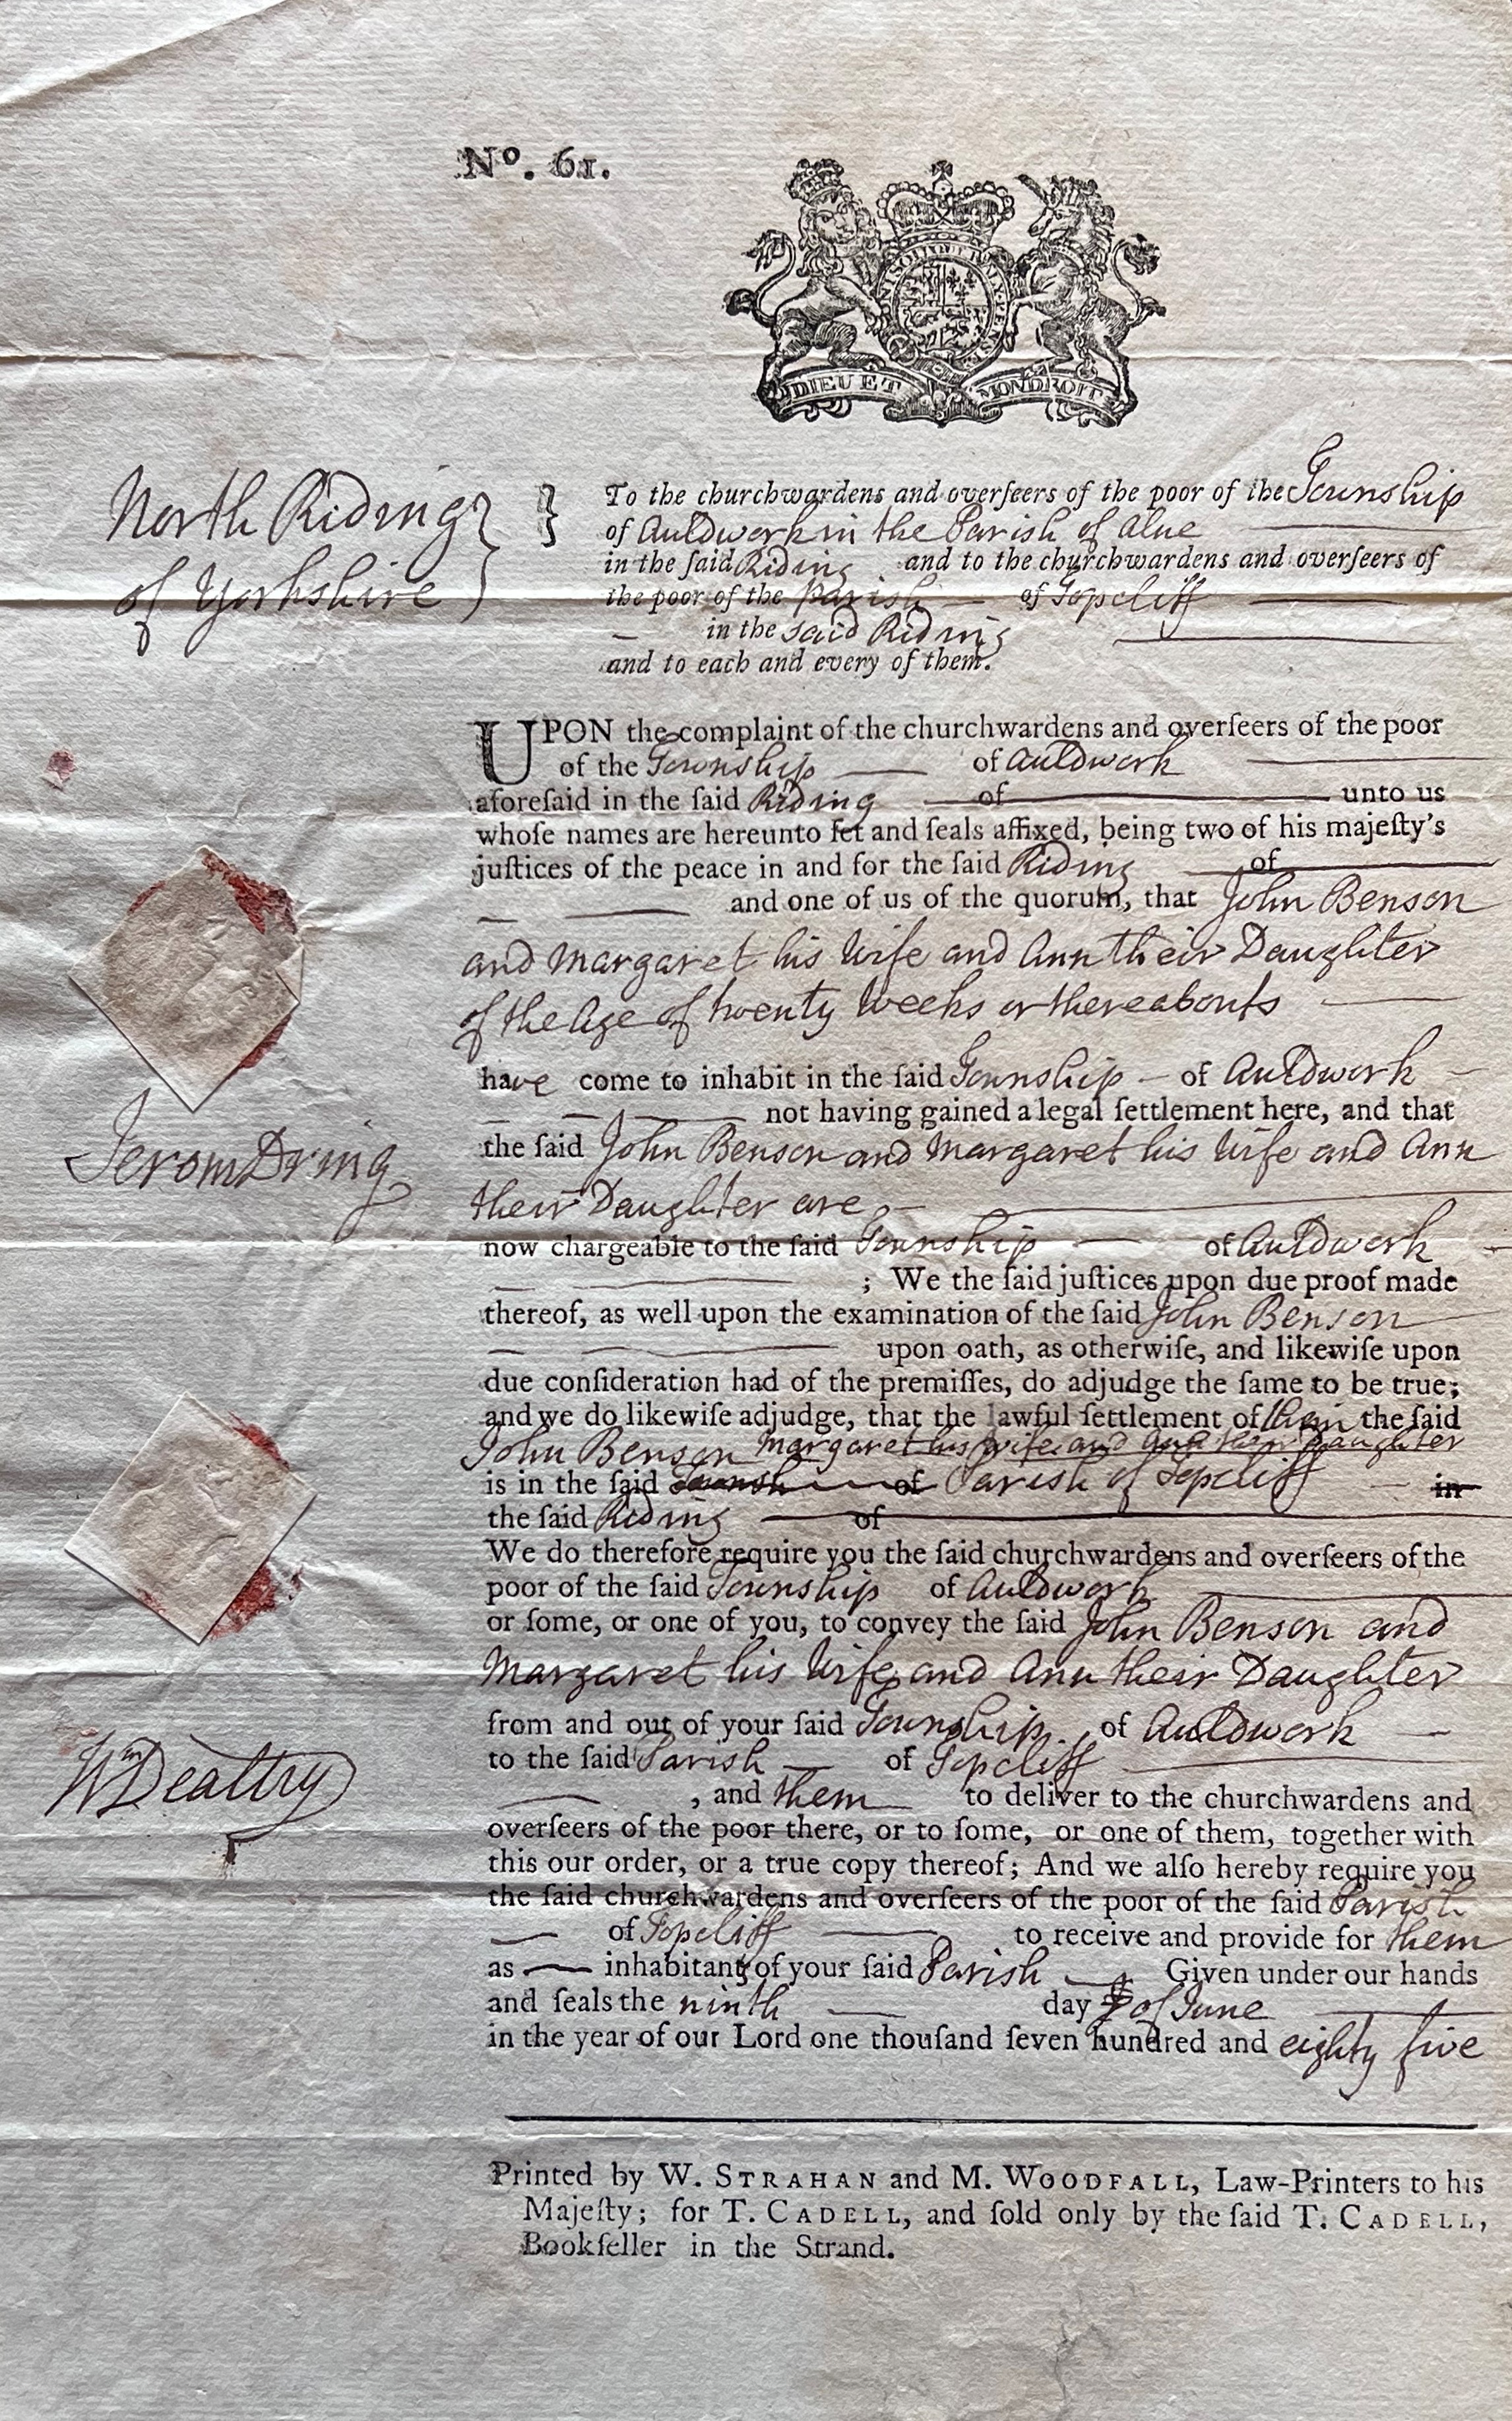 Nº. 61.
HONI SOIT QUI MAL Y PENSE
DIEU ET MON DROIT
North Riding
of Yorkshire
To the churchwardens and overſeers of the poor of the Township
of Auldwork in the Parish of Alne
in the ſaid Riding and to the churchwardens and overſeers of
the poor of the parish of Topcliff
in the said Riding
and to each and every of them.
UPON the complaint of the churchwardens and overſeers of the poor
of the Township of Auldwork
aforeſaid in the ſaid Riding of unto us
whoſe names are hereunto ſet and ſeals affixed, being two of his majeſty's
juſtices of the peace in and for the ſaid Riding of
and one of us of the quorum, that John Benson
and Margaret his Wife and Ann their Daughter
of the Age of twenty Weeks or thereabouts
have come to inhabit in the ſaid Township of Auldwork
not having gained a legal ſettlement here, and that
the ſaid John Benson and Margaret his Wife and Ann
their Daughter are
now chargeable to the ſaid Township of Auldwork
; We the ſaid juſtices upon due proof made
thereof, as well upon the examination of the ſaid John Benson
upon oath, as otherwiſe, and likewiſe upon
due conſideration had of the premiſſes, do adjudge the ſame to be true;
and we do likewiſe adjudge, that the lawful ſettlement of them the ſaid
John Benson Margaret his wife and Ann their Daughter
is in the ſaid Townsh of Parish of Topcliff in
the ſaid Riding of
We do therefore require you the ſaid churchwardens and overſeers of the
poor of the ſaid Township of Auldwork
or ſome, or one of you, to convey the ſaid John Benson and
Margaret his Wife and Ann their Daughter
from and out of your ſaid Township of Auldwork
to the ſaid Parish of Topcliff
, and them to deliver to the churchwardens and
overſeers of the poor there, or to ſome, or one of them, together with
this our order, or a true copy thereof; And we alſo hereby require you
the ſaid churchwardens and overſeers of the poor of the ſaid Parish
of Topcliff to receive and provide for them
as inhabitants of your ſaid Parish Given under our hands
and ſeals the ninth day of June
in the year of our Lord one thouſand ſeven hundred and eighty five
Jerom Dring
Wm Dealtry
Printed by W. STRAHAN and M. WOODFALL, Law-Printers to his
Majeſty; for T. CADELL, and ſold only by the ſaid T. CADELL,
Bookſeller in the Strand.